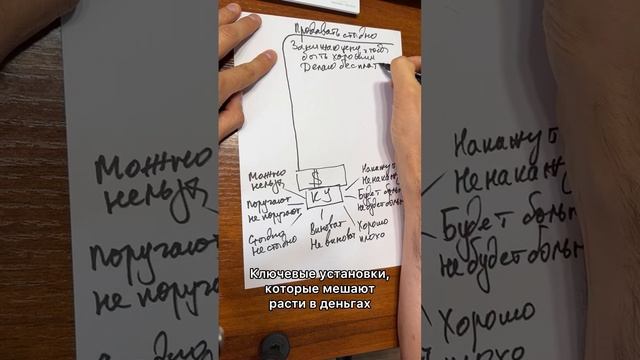 Продавать стыдно
Занижаю цену чтобы
быть хорошим
Делаю бесплат
$
КУ
Можно
нельзя
Поругают
не поругают
Стыдно
не стыдно
Виноват
Не виноват
Накажут
Ненакажут
Будет больно
не будет больно
Хорошо
плохо
Ключевые установки,
которые мешают
расти в деньгах
Можно
нельзя
поругают
не поругают
Накажут
Ненаказ
Будет боль
не будет больн
Хорошо
плохо